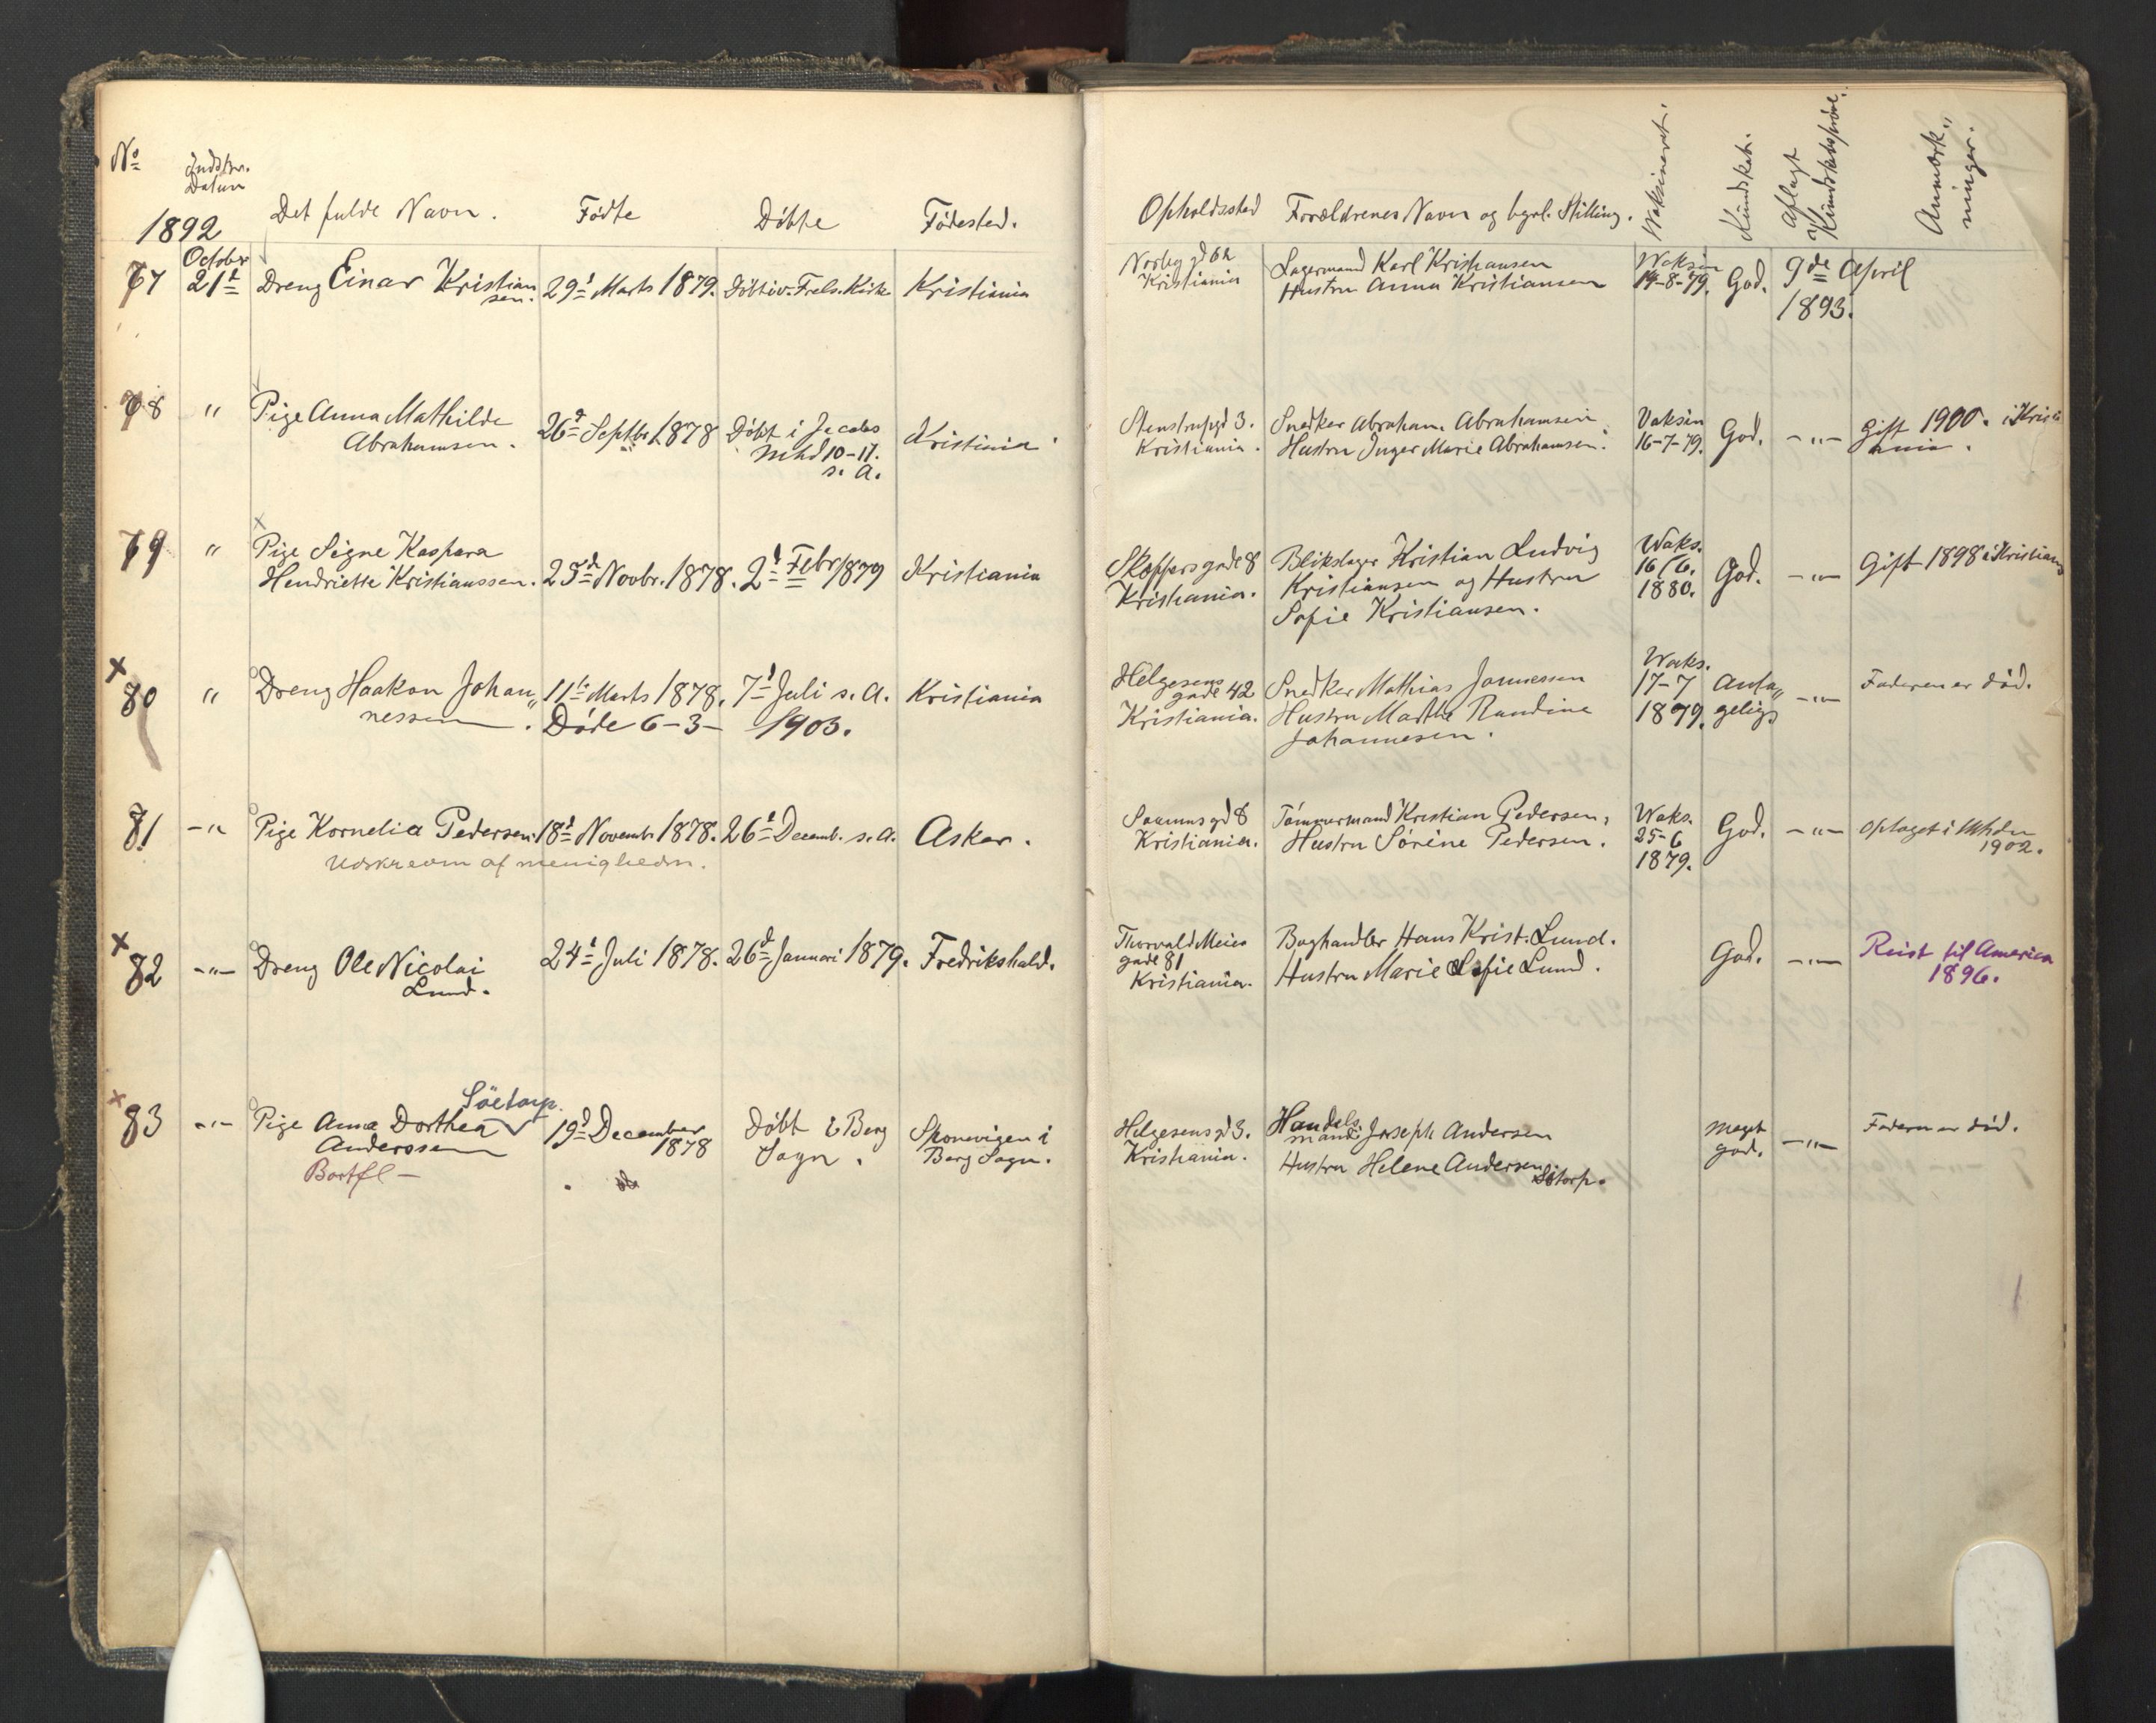 No
Indskr.
Datum
Det fulde Navn.
Fødte
Døbte
Fødested.
Opholdssted
Forældrenes Navn og bgrl. Stilling.
Vaksineret.
Kundskab.
Aflagt
Kundskabsprøve.
Anmærk„
ninger.
1892
77
October
21d
Dreng Einar Kristian
sen.
29d Marts 1879.
Døbt i v. Frels. Kirke
Kristiania
Norbygd 62
Kristiania
Lagermand Karl Kristiansen
Hustru Anna Kristiansen
Vaksin
14-8-79.
God.
9de April
1893.
78
"
Pige Anna Mathilde
Abrahamsen.
26d Septbr. 1878
Døbt i Jacobs
Mhd 10-17.
s. A.
Kristiania
Stenstrupgd 3.
Kristiania.
Snedker Abraham Abrahamsen
Hustru Inger Marie Abrahamsen.
Vaksin
16-7-79.
God.
-"-
Gift 1900. i Kristi
ania.
79
"
Pige Signe Kaspara
Hendriette Kristianssen.
25d Novbr. 1878.
2d Febr 1879
Kristiania
Skippergade 8
Kristiania.
Blikslager Kristian Ludvig
Kristiansen og Hustru
Sofie Kristiansen.
Waks.
16/6.
1880.
God.
-"-
Gift 1898 i Kristiania
x
80
"
Dreng Haakon Johan„
nessen.
11te Marts 1878.
Døde 6-3-1903.
7d Juli s. A.
Kristiania
Helgesens
gade 42
Kristiania.
Snedker Mathias Johannessen
Hustru Marthe Randine
Johannesen.
Waks.
17-7
1879.
Anta„
gelig
-"-
Faderen er død.
81
-"
Pige Kornelia Pedersen.
Udskreven af menigheden.
18d Novemb. 1878.
26d Decemb. s. A.
Asker.
Saumsgd 8
Kristiania.
Tømmermand Kristian Pedersen,
Hustru Sørine Pedersen.
Waks.
25-6
1879.
God.
-"-
Optaget i Mhdn
1902.
x
82
-"-
Dreng Ole Nicolai
Lund.
24d Juli 1878.
26d Januari 1879.
Fredrikshald.
Thorvald Meies
gade 81
Kristiania.
Boghandler Hans Krist. Lund.
Hustru Marie Sofie Lund.
God.
-"-
Reist til America
1896.
x
83
-"-
Søetorp.
Pige Anna Dorthea
Anderssen
Bortfl-
19d December
1878
Døbt i Berg
Sogn.
Sponvigen i
Berg Sogn.
Helgesensgd 3.
Kristiania.
Handels
mand Joseph Andersen
Hustru Helene Andersen
Sötorp.
Meget
god.
-"-
Faderen er død.